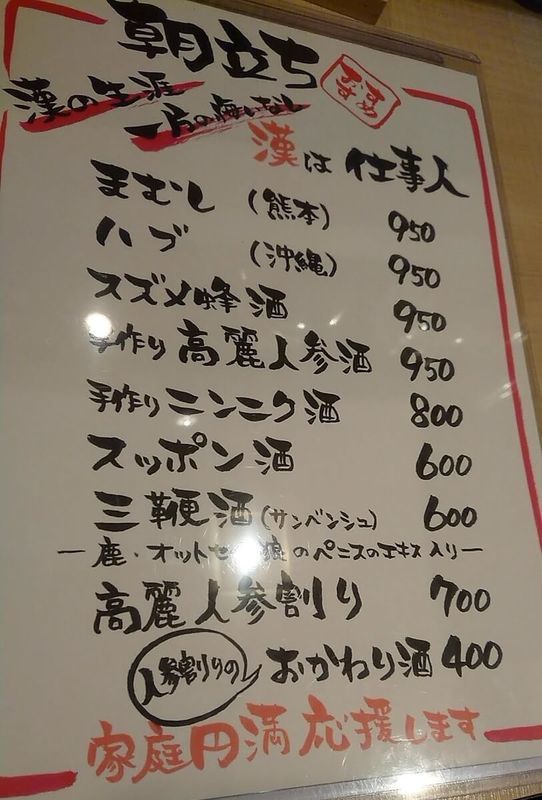 朝立ち
おすすめ
漢の生涯
一片の悔いなし
漢は仕事人
まむし (熊本) 950
ハブ (沖縄) 950
スズメ蜂酒 950
手作り高麗人参酒 950
手作りニンニク酒 800
スッポン酒 600
三鞭酒(サンベンシュ) 600
ー鹿・オットセ 狼のペニスのエキス入りー
高麗人参割り 700
人参割りの おかわり酒 400
家庭円満応援します